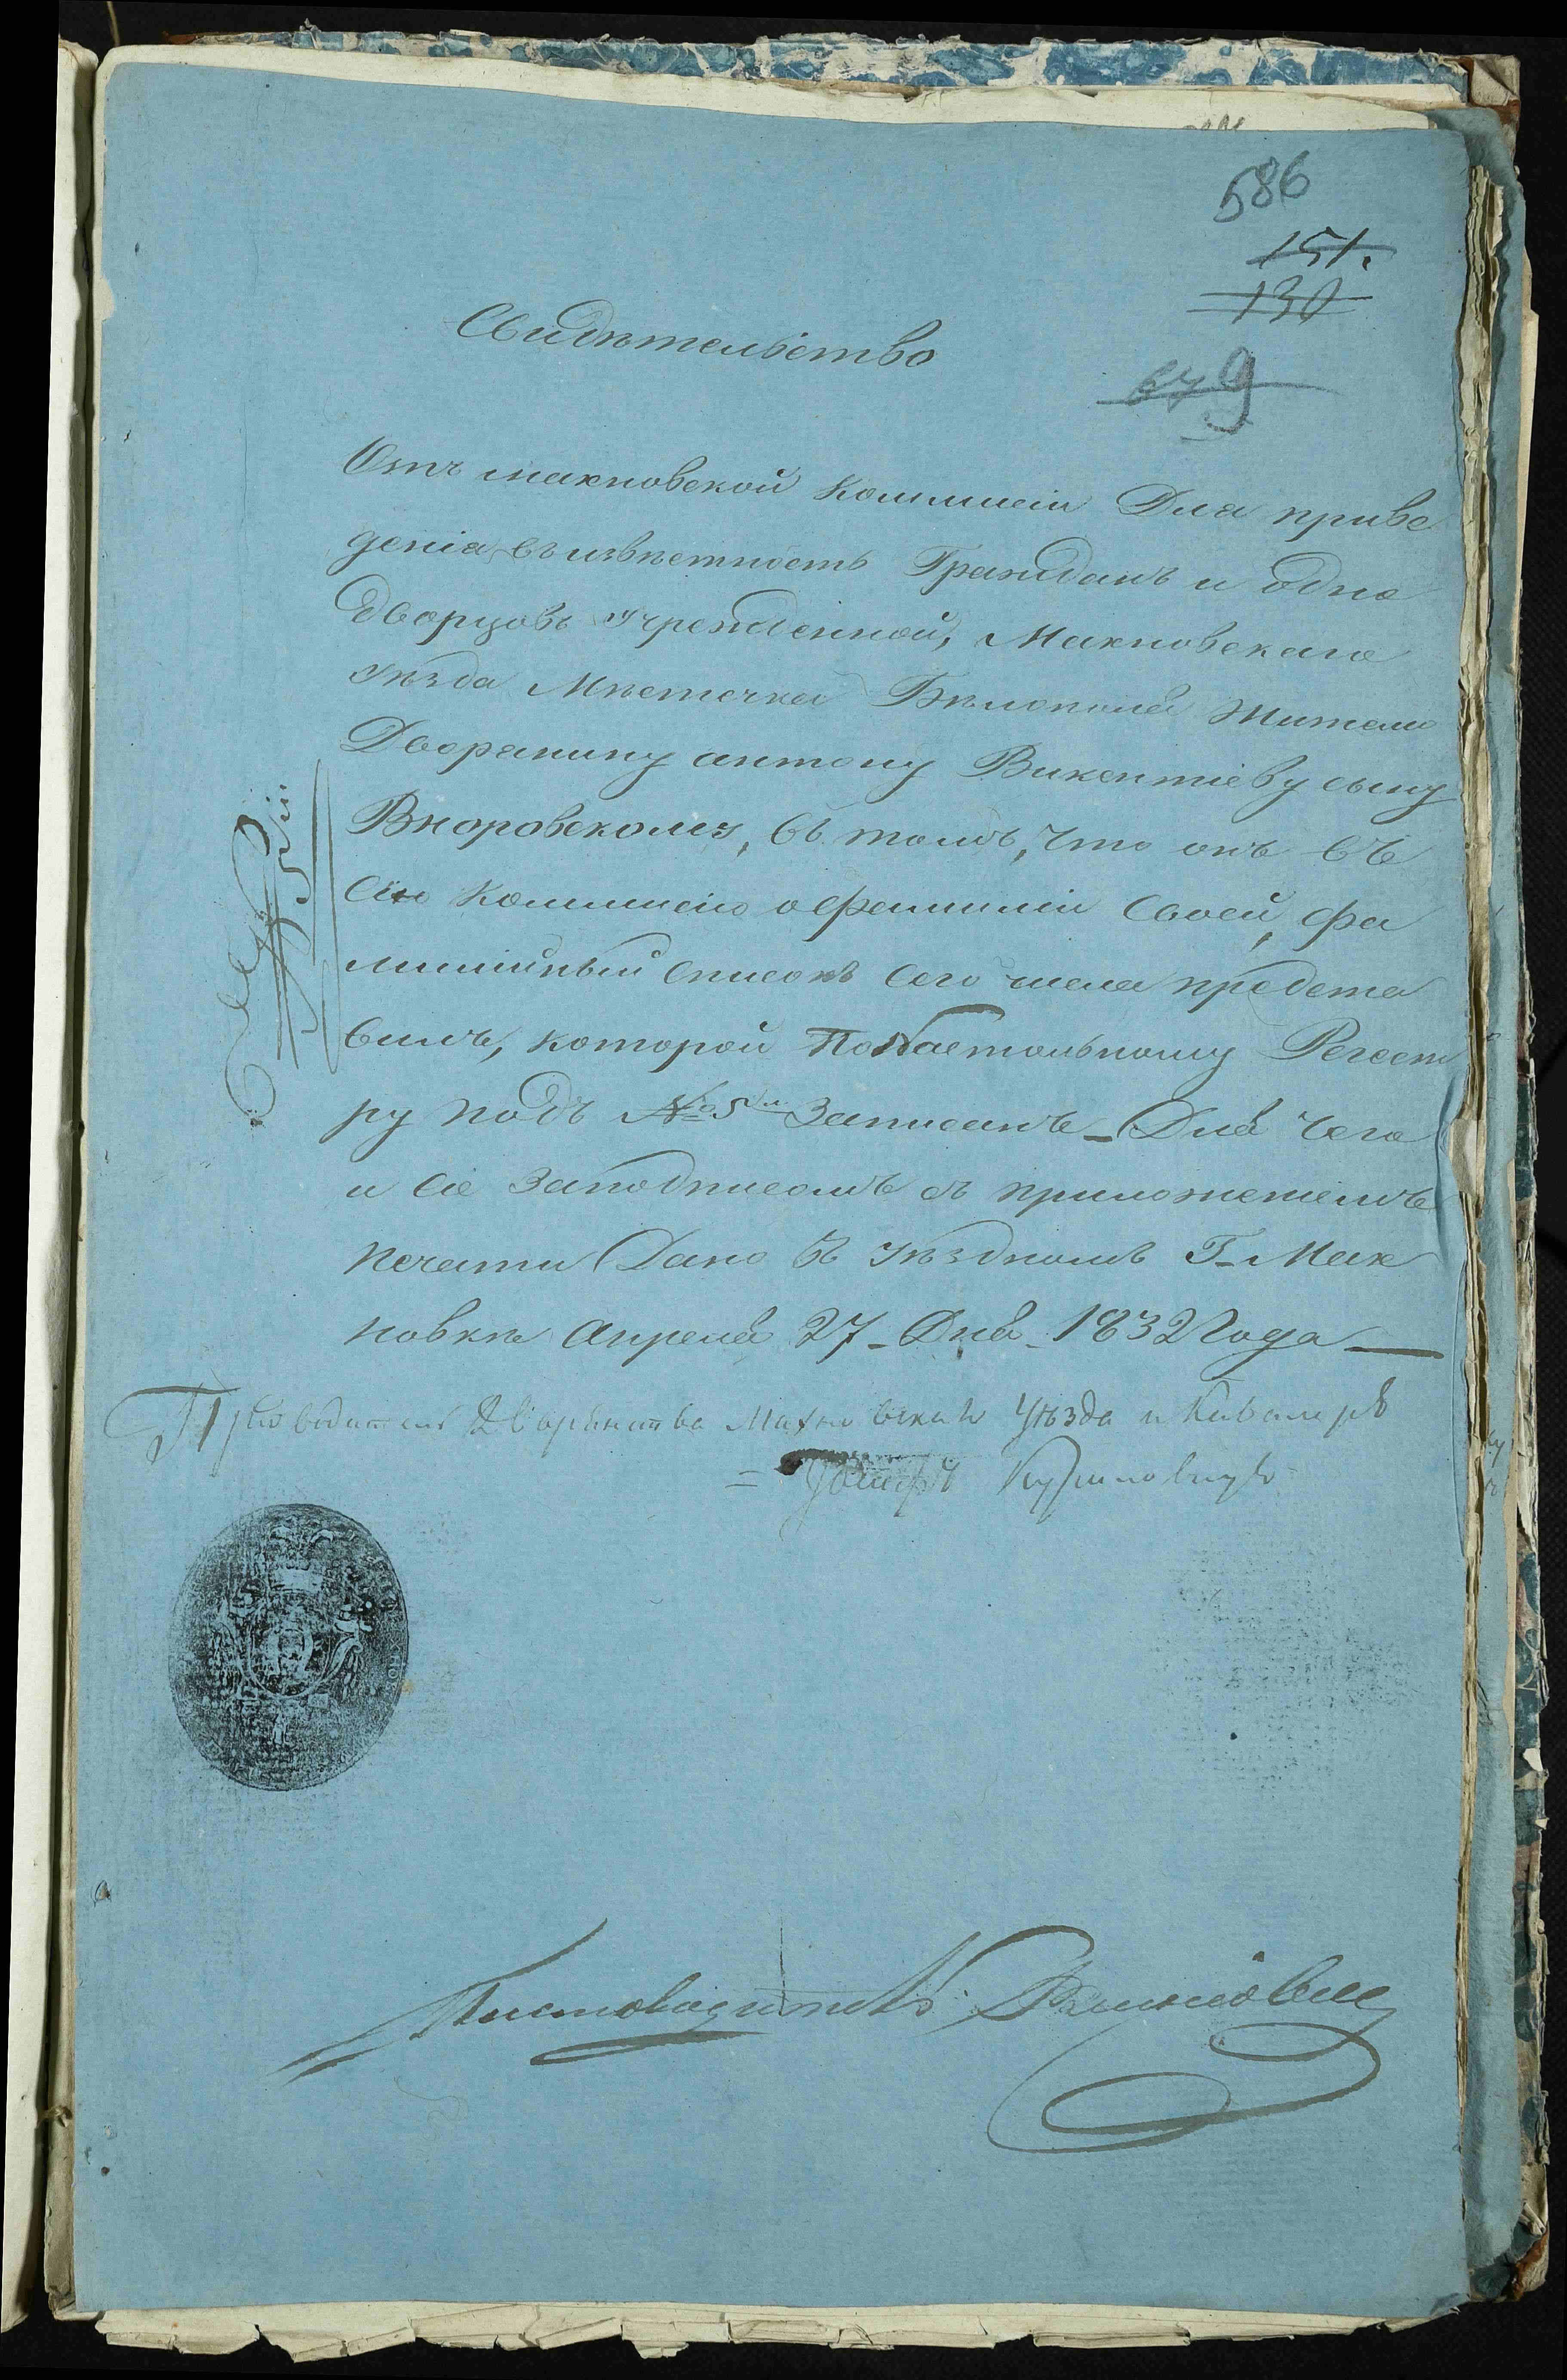 586
151.
130
679
Свидѣтельство
Отъ махновской Коммисіи Для приве
денія въ извѣстность Гражданъ и одно
дворцовъ Учрежденной, Махновскаго
уѣзда Мѣстечка Бѣлополя Жителю
Дворянину антону Викентіеву сыну
Вноровскому, въ томъ, что онъ въ
Сію Коммисію о фамиліи Своей, фа
милійный Списокъ Сего числа предста
вилъ, которой По Настольному Реест
ру подъ № 5 Записанъ - Для чего
и Сіе Заподписомъ съ приложеніемъ
печати Дано въ Уѣздномъ Г. Мах
новкѣ Апреля 27 - Дня - 1832 Года —
Предводитель Дворянства Махновскаго Уѣзда и Кавалеръ
= Іосифъ
Писмоводитель